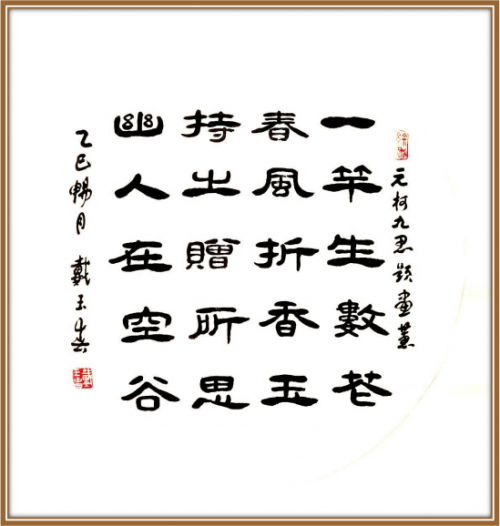 元柯九思題畫蕙
一竿生數花
春風折香玉
持之贈所思
幽人在空谷
乙巳暢月 戴玉